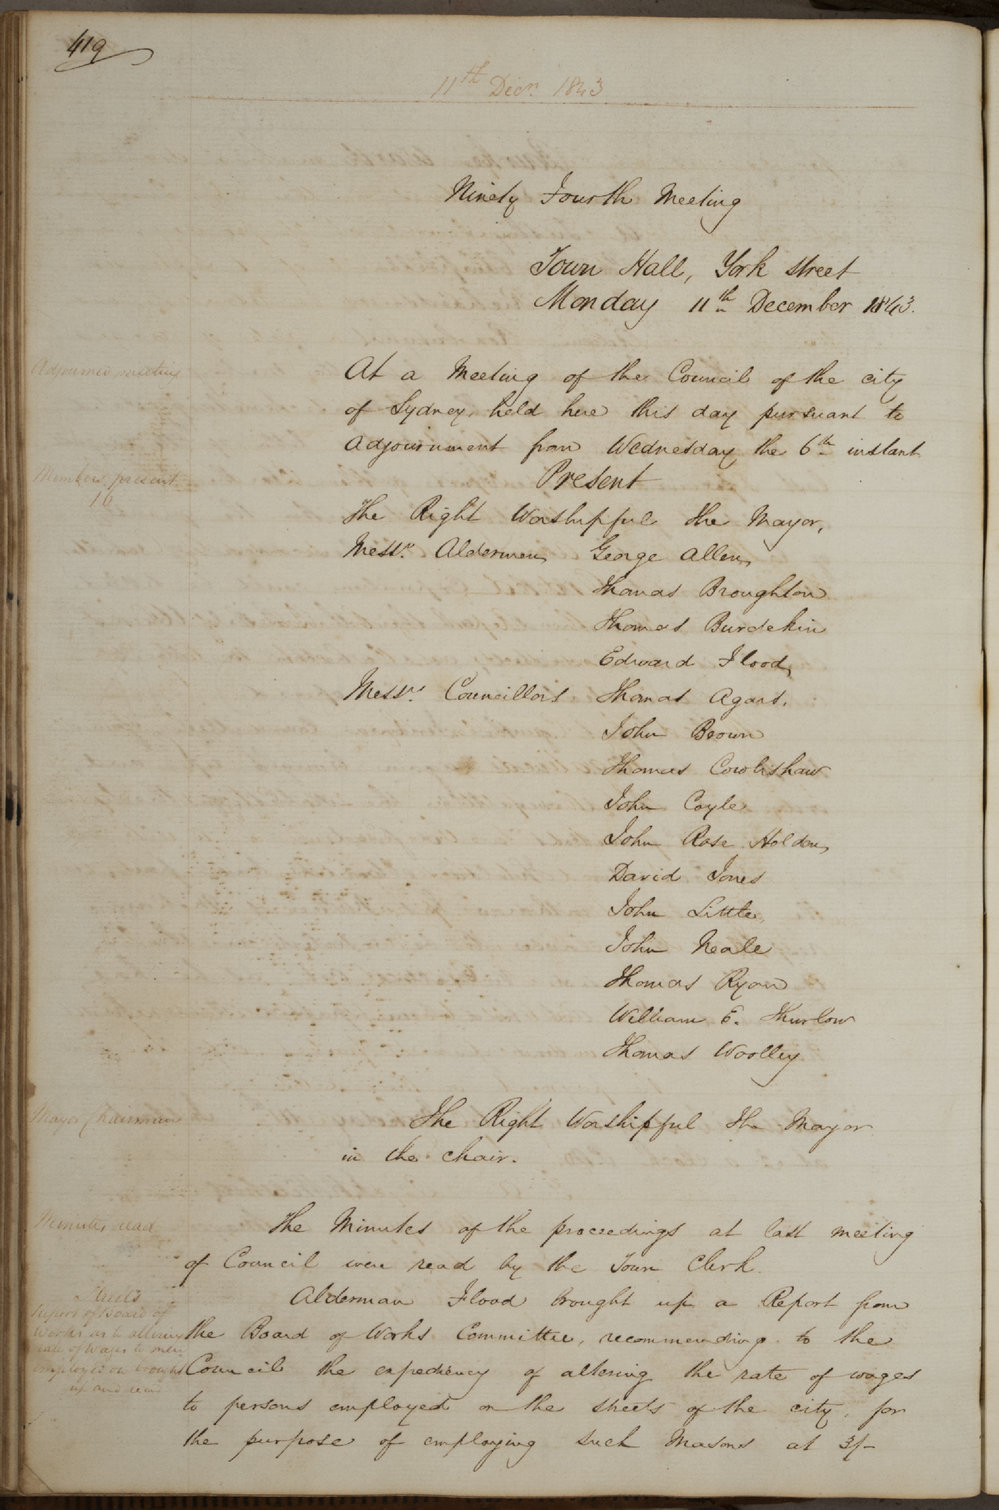 419
11th Decr. 1843
Ninety Fourth Meeting
Town Hall, York street
Monday 11th December 1843.
Adjourned meeting
At a Meeting of the Council of the city
of Sydney, held here this day pursuant to
adjournment from Wednesday the 6th instant
Members present
16
Present
The Right Worshipful the Mayor,
Messrs. Aldermen George Allen,
Thomas Broughton
Thomas Burdekin
Edward Flood,
Messrs. Councillors Thomas Agars.
John Brown
Thomas Cowlishaw
John Coyle
John Rose Holden,
David Jones
John Little,
John Neale
Thomas Ryan
William E. Thurlow
Thomas Woolley
Mayor Chairman
The Right Worshipful the Mayor
in the chair.
Minutes read
The Minutes of the proceedings at last meeting
of Council were read by the Town Clerk.
Streets
Report of Board of
Works as to altering
rate of wages to men
employed on brought
up and read
Alderman Flood brought up a Report from
the Board of Works Committee, recommending to the
Council the expediency of altering the rate of wages
to persons employed on the streets of the city, for
the purpose of employing such Masons at 3/-